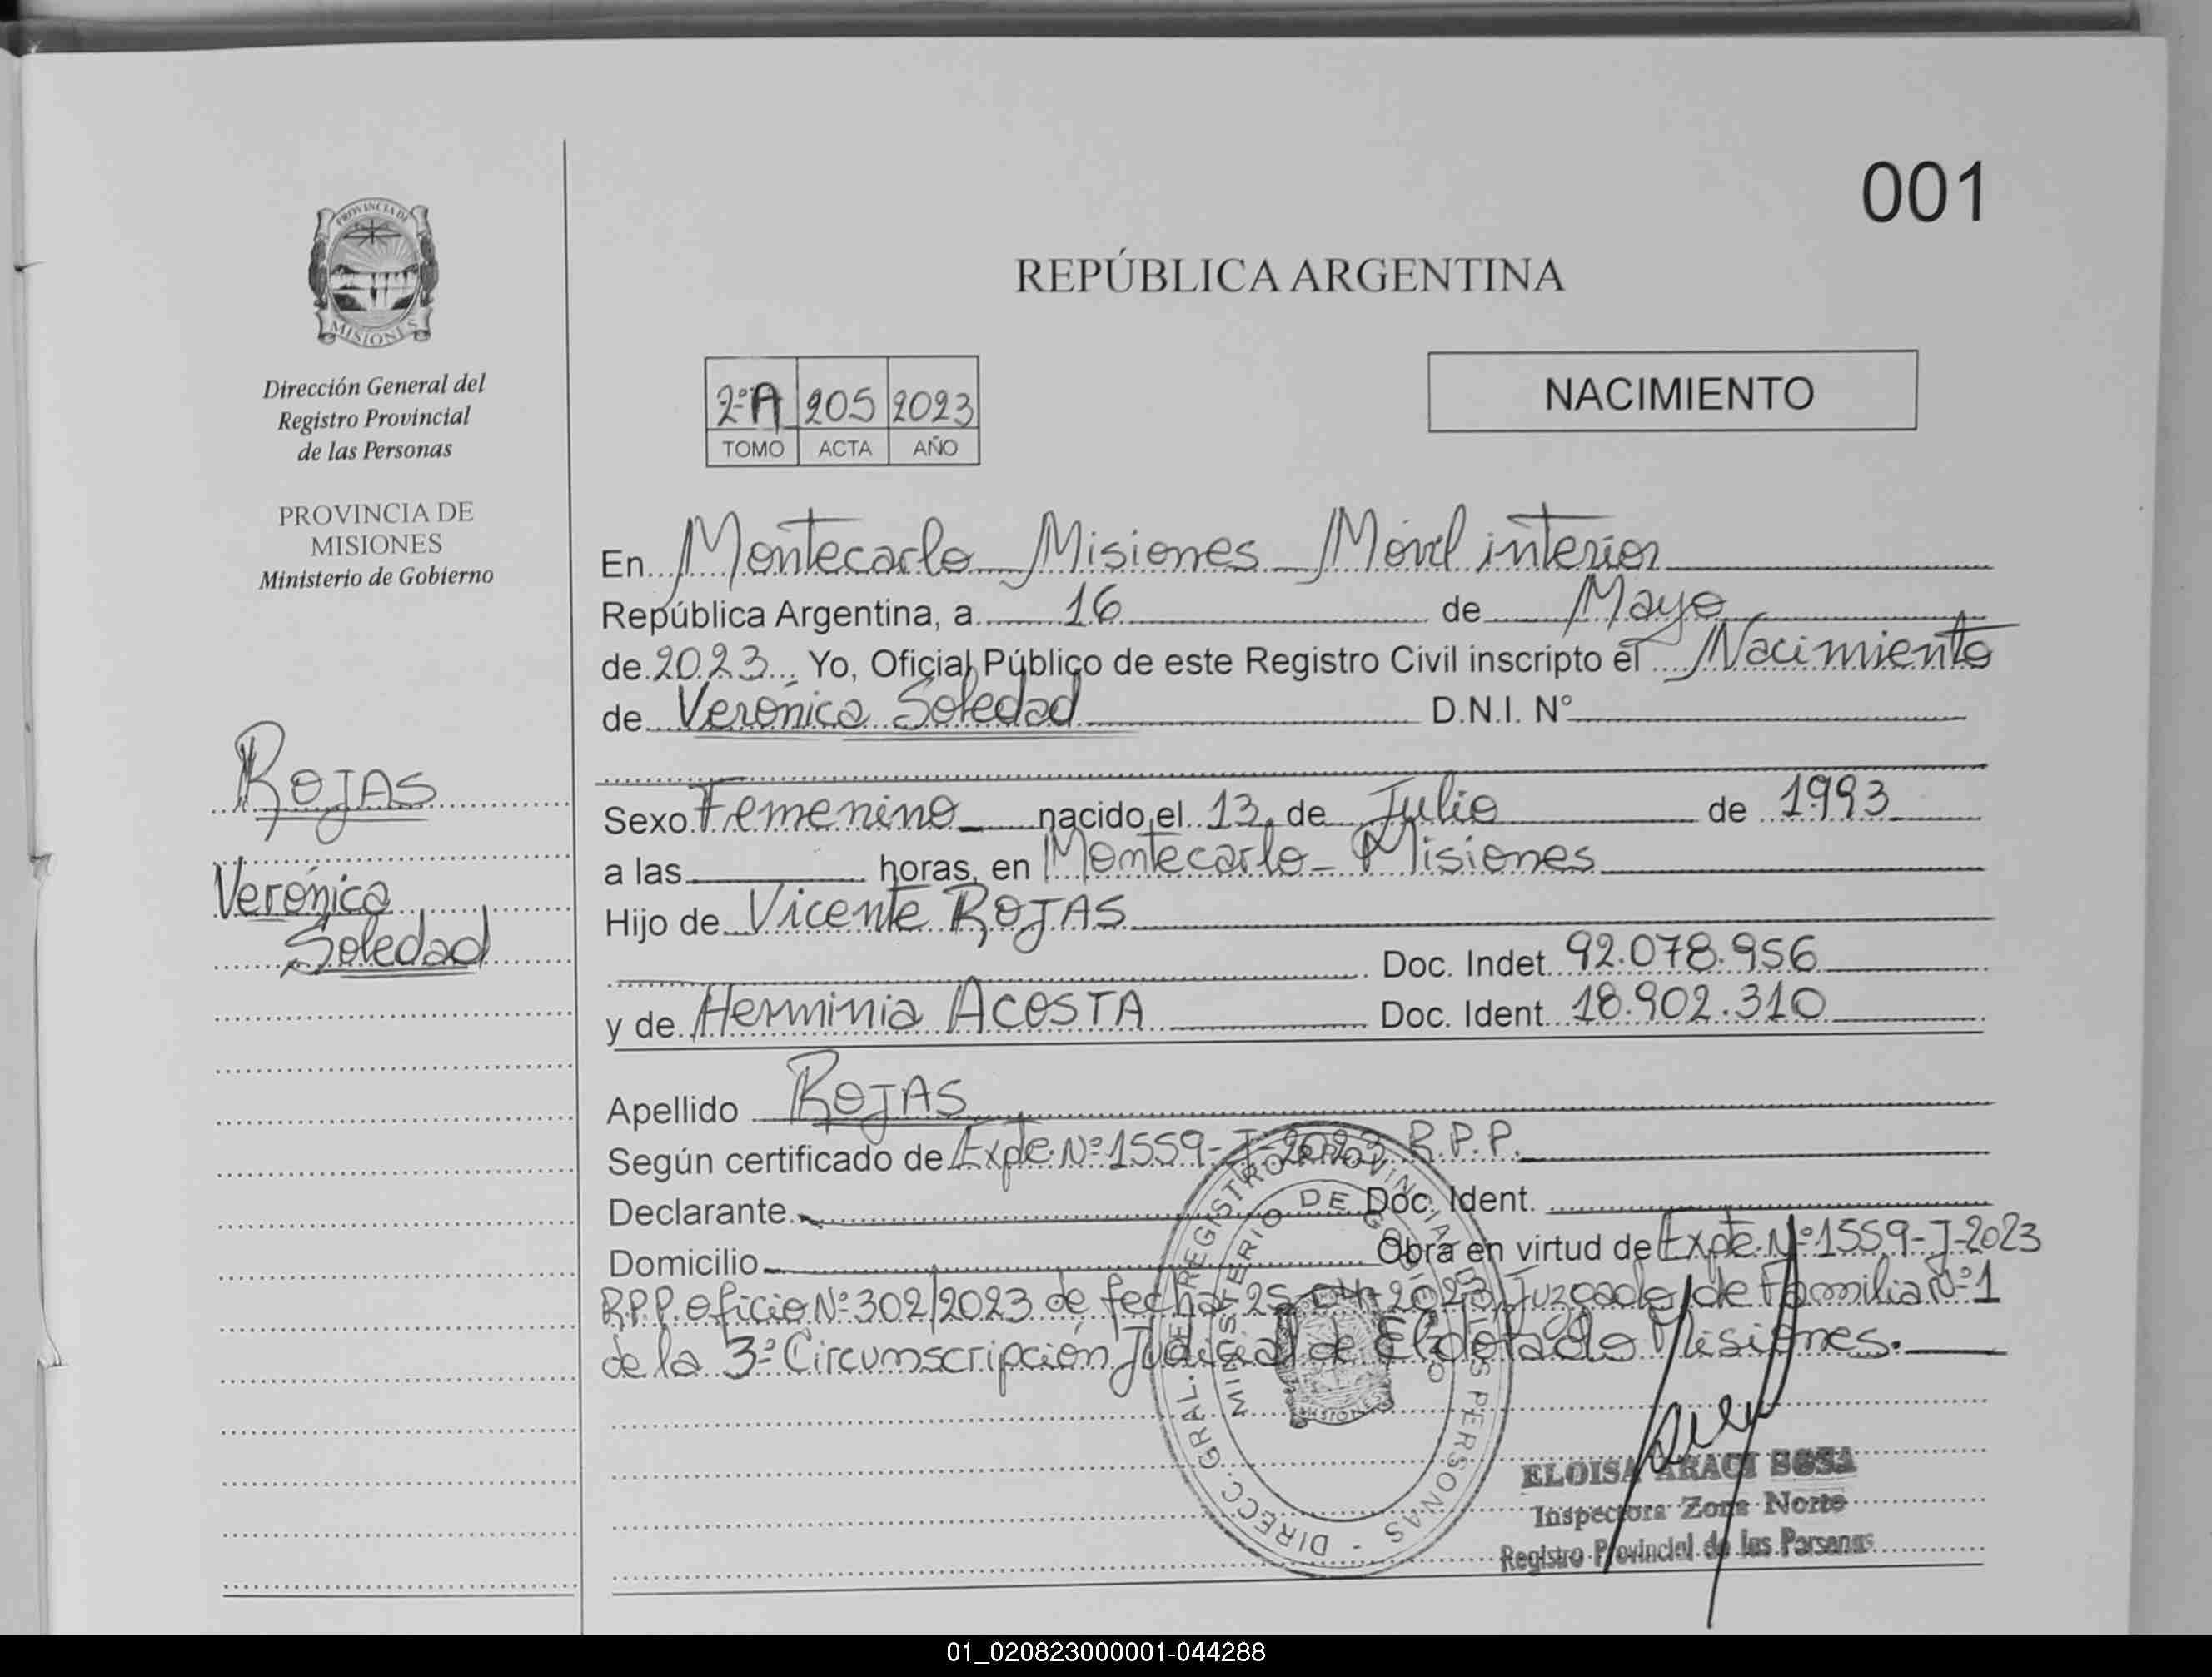 001
PROVINCIA DE
MISIONES
Dirección General del
Registro Provincial
de las Personas
PROVINCIA DE
MISIONES
Ministerio de Gobierno
ROJAS
Verónica
Soledad
REPÚBLICA ARGENTINA
2ºA 205 2023
TOMO ACTA AÑO
NACIMIENTO
En Montecarlo Misiones Móvil interior
República Argentina, a 16 de Mayo
de 2023 Yo, Oficial Público de este Registro Civil inscripto el Nacimiento
de Verónica Soledad D.N.I. Nº
Sexo Femenino nacido el 13 de Julio de 1993
a las horas, en Montecarlo - Misiones
Hijo de Vicente ROJAS
Doc. Indet. 92.078.956
y de Herminia ACOSTA Doc. Ident. 18.902.310
Apellido ROJAS
Según certificado de Expte. Nº 1559-J-2023 R.P.P.
Declarante Doc. Ident.
Domicilio Obra en virtud de Expte. Nº 1559-J-2023
R.P.P. Oficio Nº 302/2023 de fecha 25-04-2023 Juzgado de Familia Nº 1
de la 3ª Circunscripción Judicial de Eldorado Misiones.
DIRECC. GRAL. DE REGISTRO PROVINCIAL DE LAS PERSONAS -
MINISTERIO DE GOBIERNO
MISIONES
ELOISA ARACI SOSA
Inspectora Zona Norte
Registro Provincial de las Personas
01_020823000001-044288